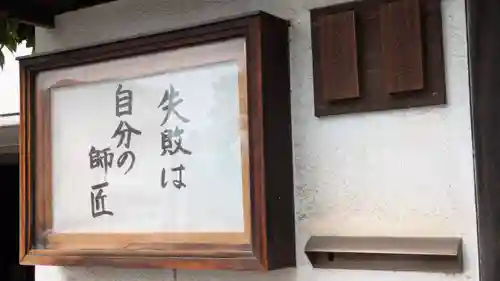 失敗は
自分の
師匠